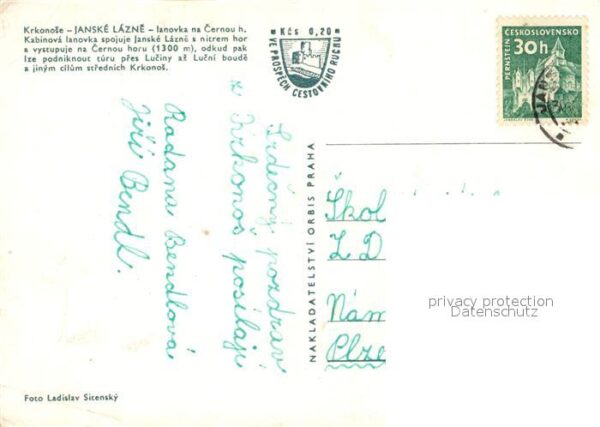 Krkonoše – JANSKÉ LÁZNĚ – lanovka na Černou h.
Kabinová lanovka spojuje Janské Lázně s nitrem hor
a vystupuje na Černou horu (1300 m), odkud pak
lze podniknout túru přes Lučiny až Luční boudě
a jiným cílům středních Krkonoš.
Kčs 0,20
VE PROSPĚCH CESTOVNÍHO RUCHU
ČESKOSLOVENSKO
30h
PERNŠTEJN
JANS
Srdečný pozdrav
z Krkonoš posílají
Radana Bendlová
Jiří Bendl.
NAKLADATELSTVÍ ORBIS PRAHA
Škol
Z D
Nám
Plze
privacy protection
Datenschutz
Foto Ladislav Sitenský